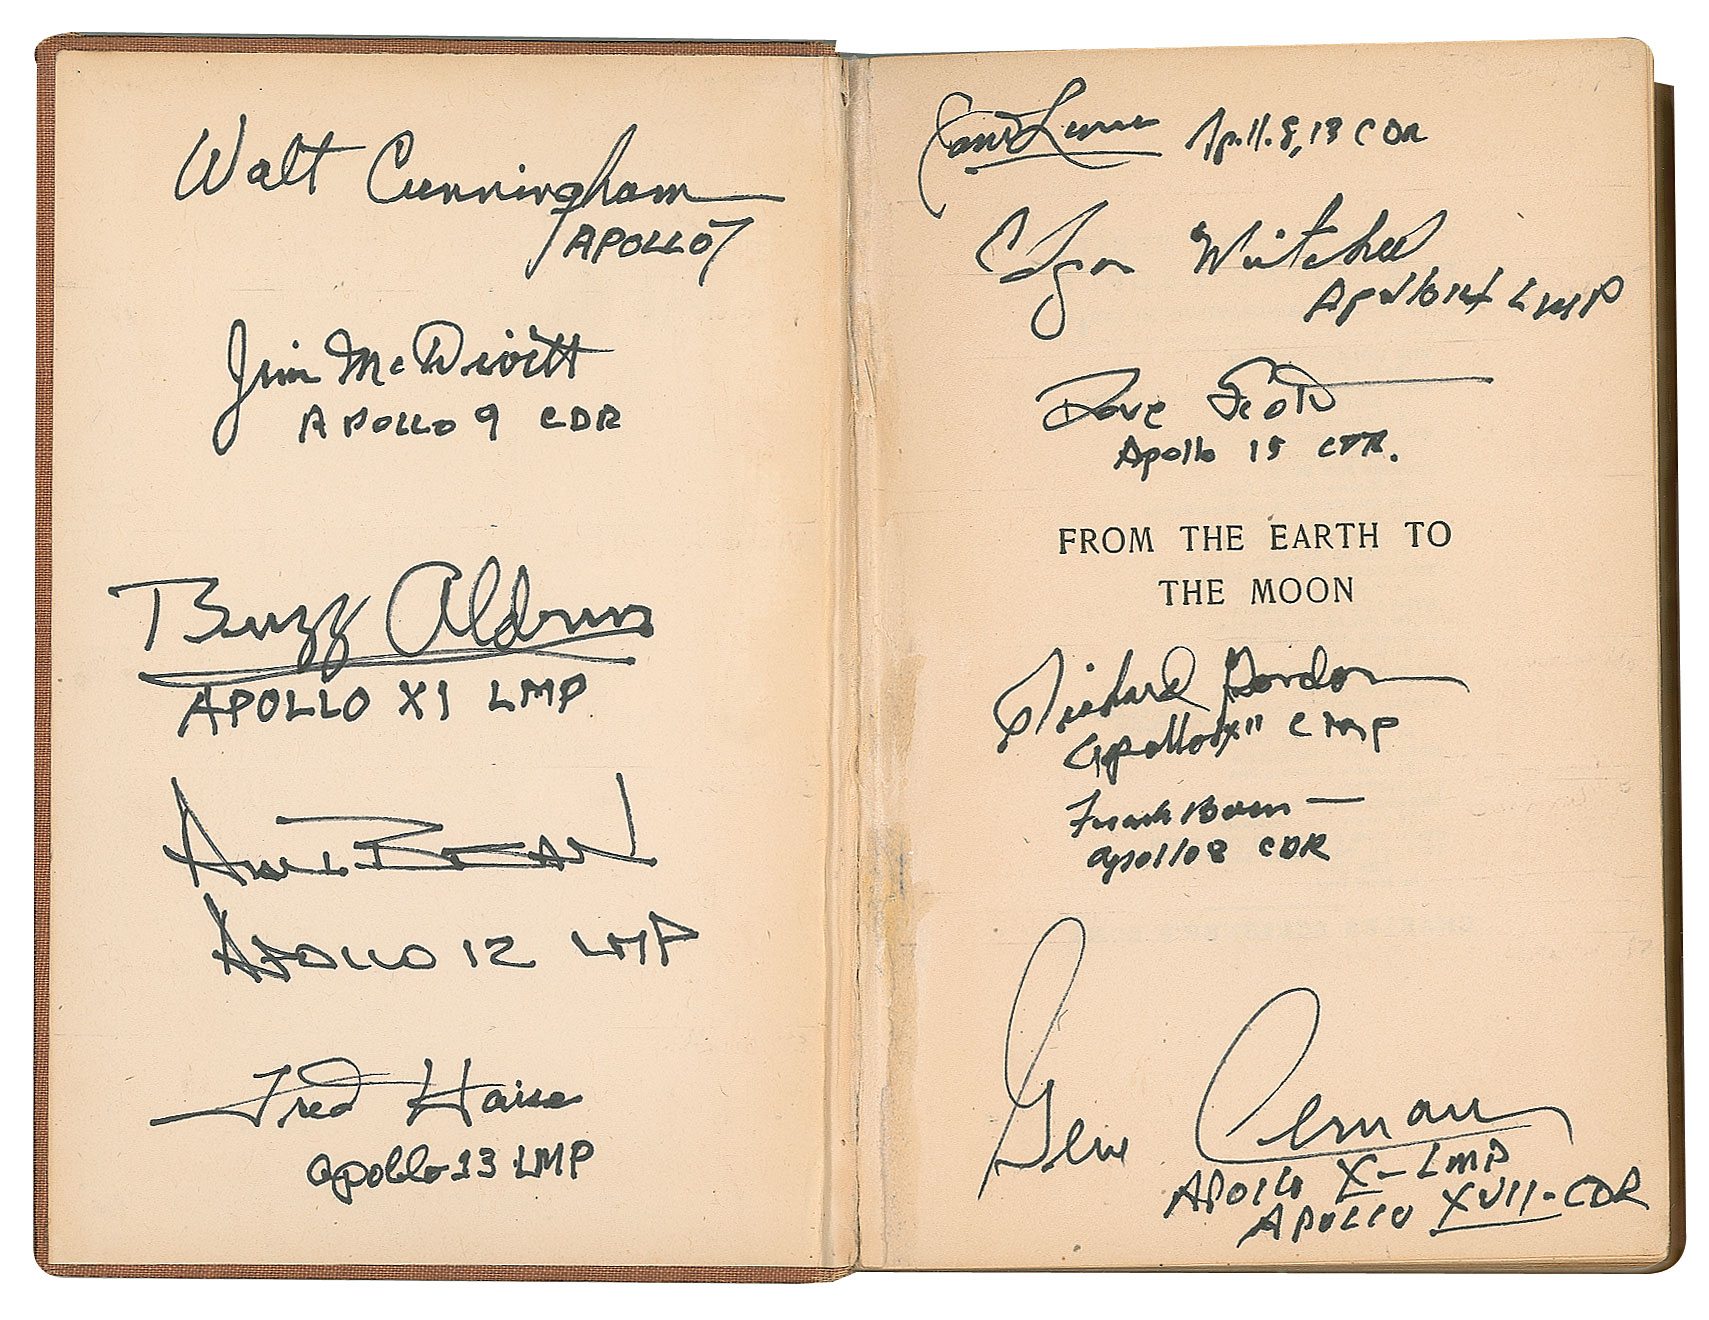 Walt Cunningham
APOLLO 7
Jim McDivitt
APOLLO 9 CDR
Buzz Aldrin
APOLLO XI LMP
Alan Bean
APOLLO 12 LMP
Fred Haise
Apollo 13 LMP
James Lovell Apollo 8, 13 CDR
Edgar Mitchell
Apollo 14 LMP
Dave Scott
Apollo 15 CDR.
FROM THE EARTH TO
THE MOON
Richard Gordon
Apollo XII CMP
Frank Borman
Apollo 8 CDR
Gene Cernan
APOLLO X - LMP
APOLLO XVII - CDR